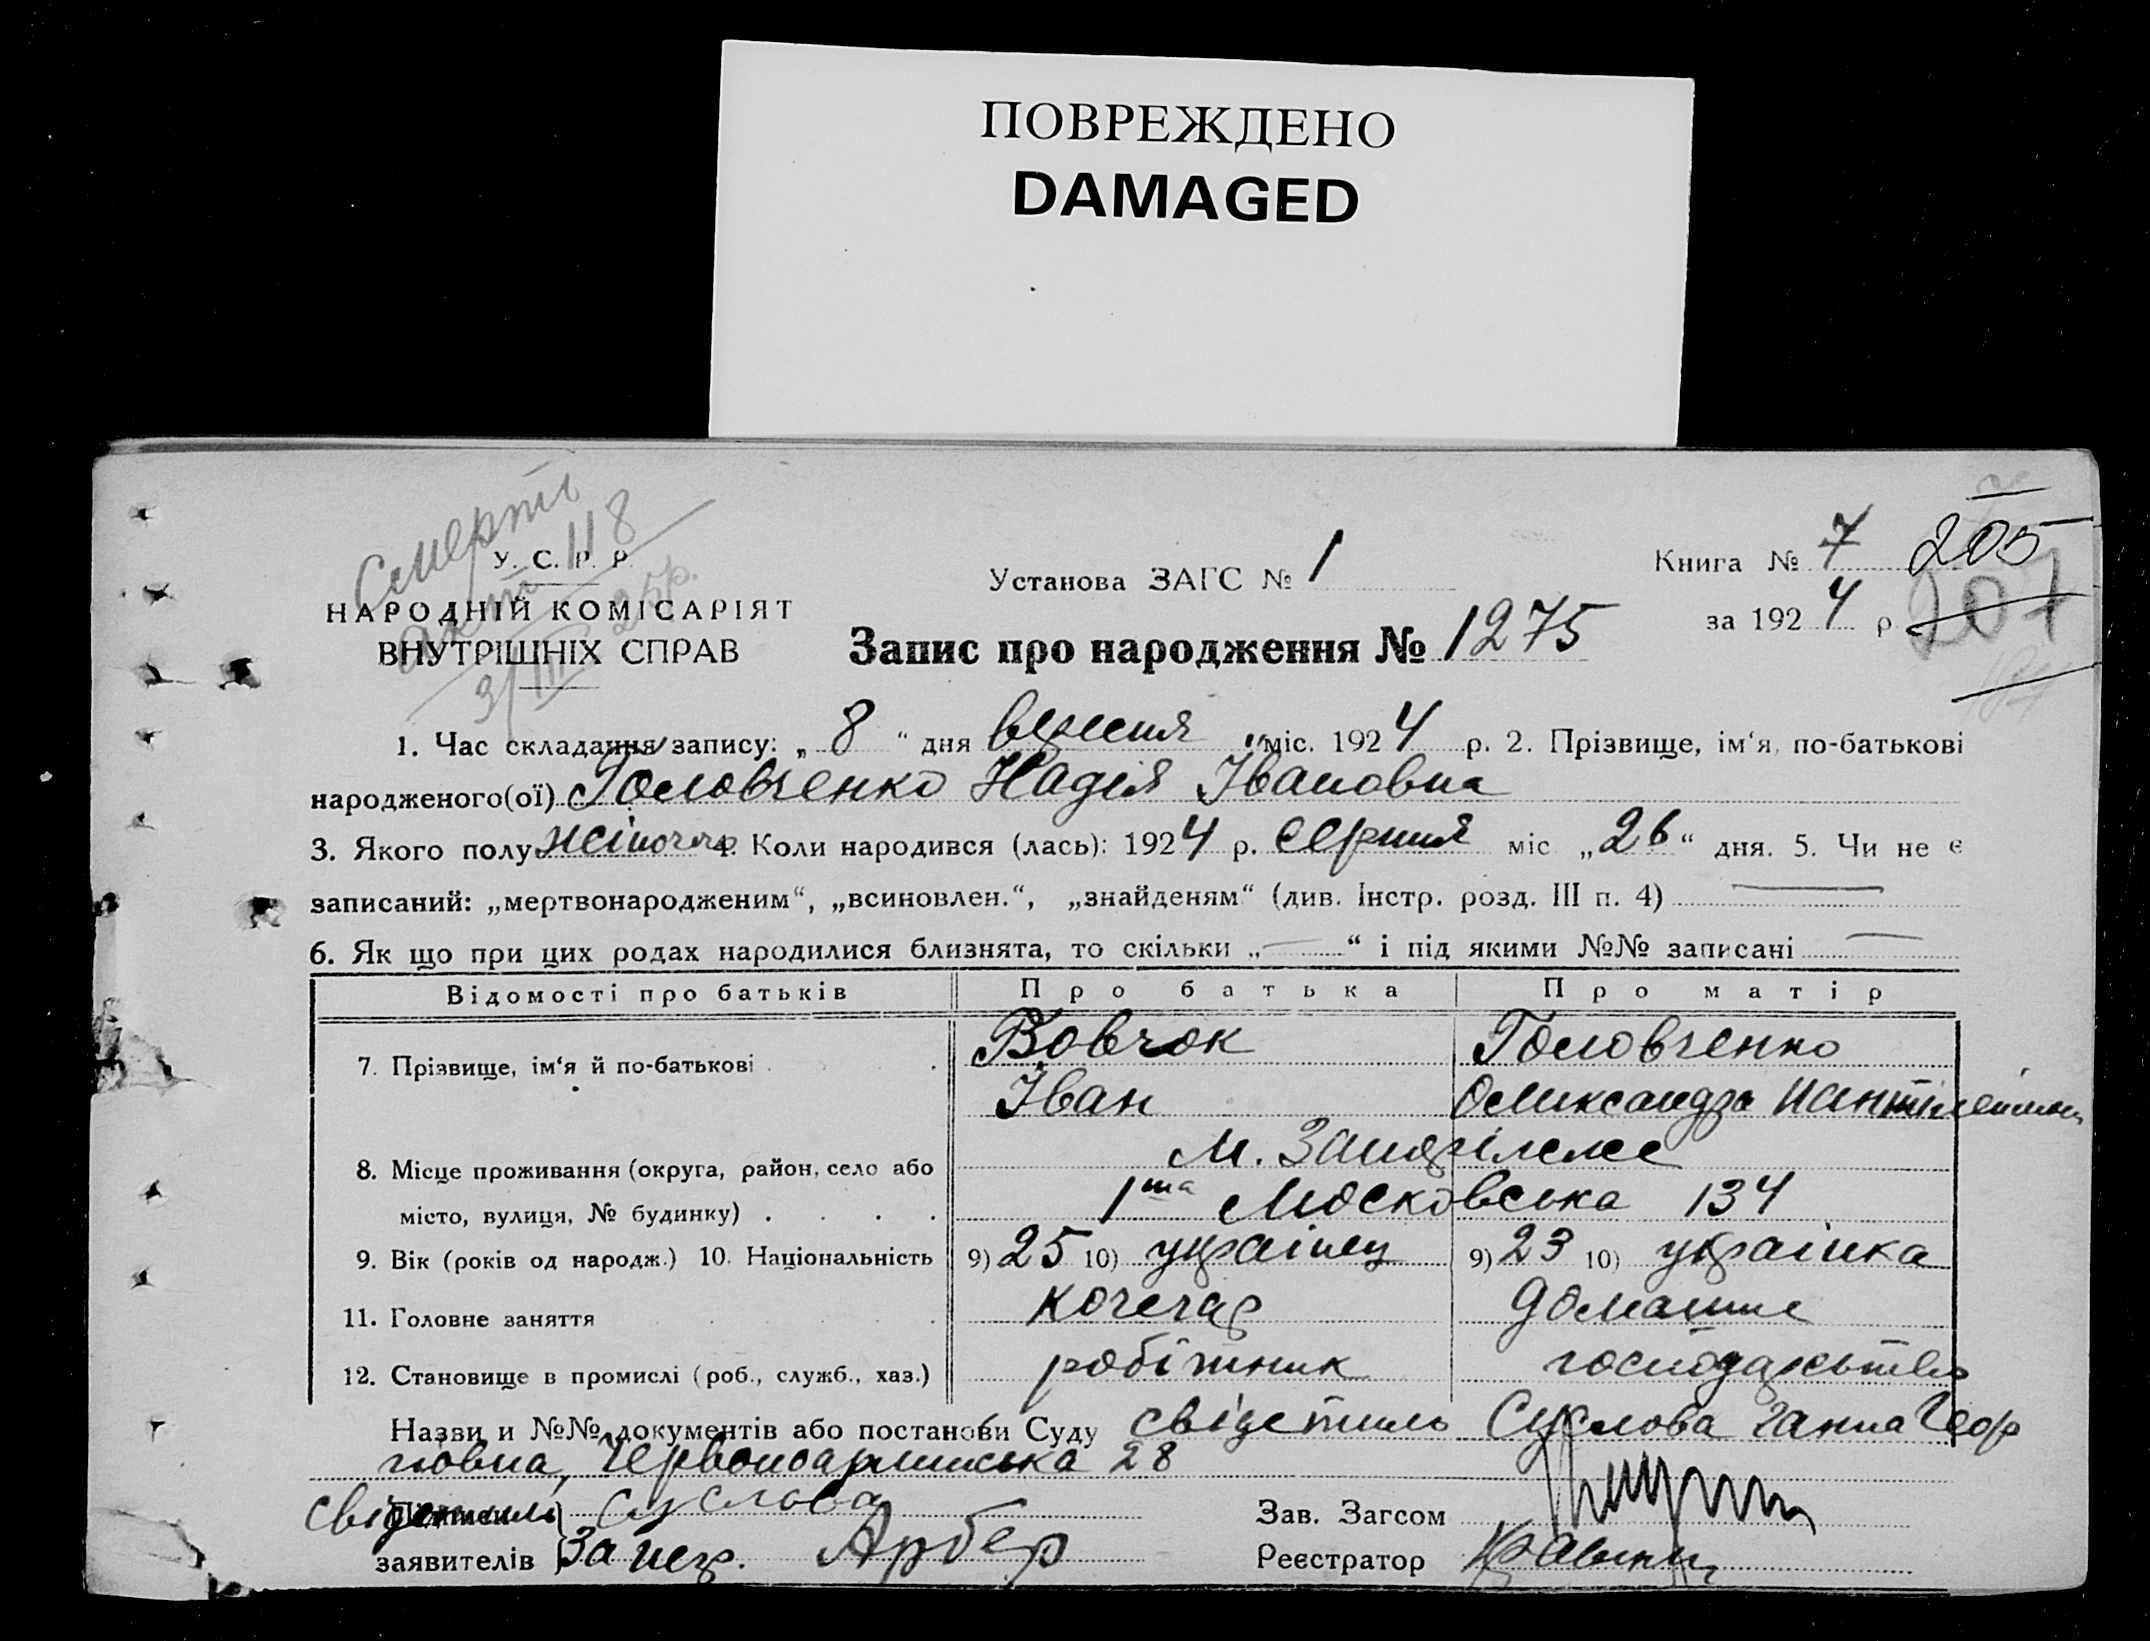 ПОВРЕЖДЕНО
DAMAGED
Смерть
акт 118
3/III 25р.
У. С. Р. Р.
НАРОДНІЙ КОМІСАРІЯТ
ВНУТРІШНІХ СПРАВ
Установа ЗАГС № 1
Книга № 7 205
за 1924 р. 207
Запис про народження № 1275
1. Час складання запису: „8“ дня вересня міс. 1924 р. 2. Прізвище, ім‘я, по-батькові
народженого(ої) Головченко Надія Івановна
3. Якого полу жіночого 4. Коли народився (лась): 1924 р. серпня міс „26“ дня. 5. Чи не є
записаний: „мертвонародженим“, „всиновлен.“, „знайденям“ (див. Інстр. розд. III п. 4)
6. Як що при цих родах народилися близнята, то скільки „—“ і під якими №№ записані —
Відомості про батьків Про батька Про матір
7. Прізвище, ім‘я й по-батькові Вовчок Головченко
Іван Олександра
8. Місце проживання (округа, район, село або м. Запоріжже
місто, вулиця, № будинку) 1ша Московська 134
9. Вік (років од народж.) 10. Національність 9) 25 10) українец 9) 23 10) українка
11. Головне заняття кочегар домашнє
12. Становище в промислі (роб., служб., хаз.) робітник господарьство
Назви и №№ документів або постанови Суду свідетиль Суслова Ганна Геор
гіовна, Червоноармиська 28
Підписи Суслова
заявителів За пер. Арбер
Зав. Загсом
Реєстратор